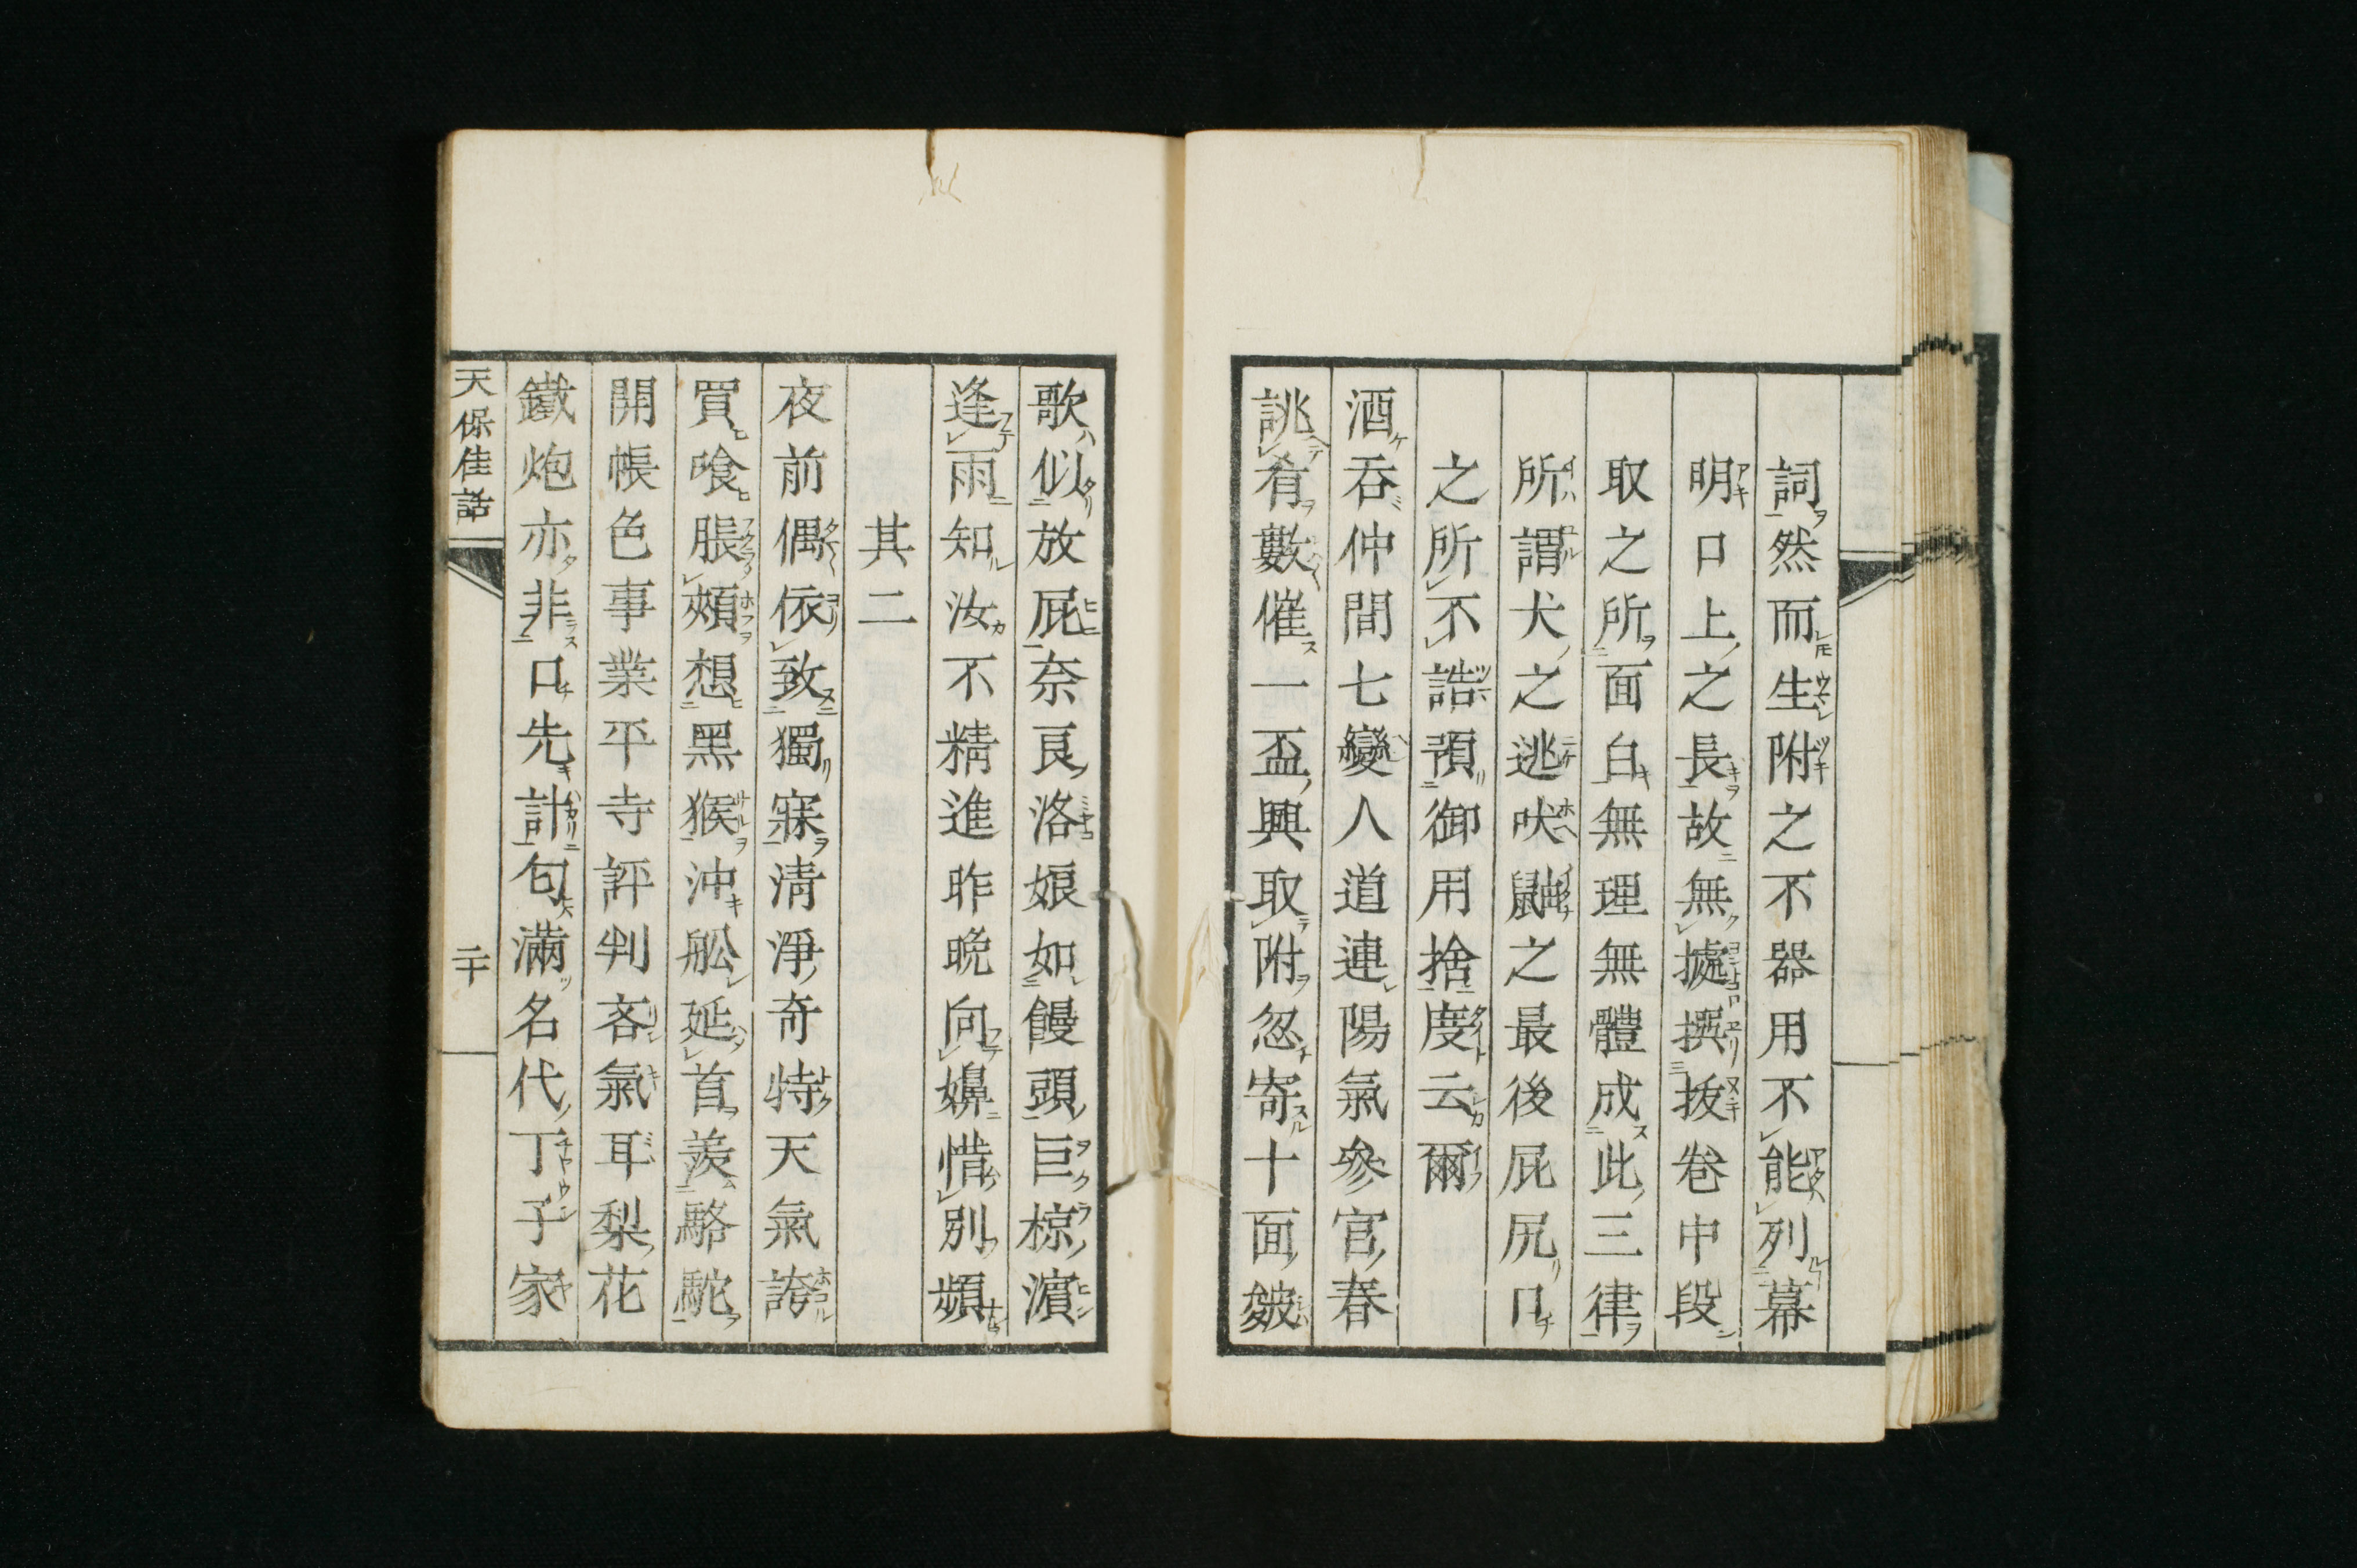 詞然而生附之不器用不能列幕
明口上之長故無據撰拔卷中段
取之所面白無理無體成此三律
所謂犬之逃吠鼬之最後屁尻口
之所不誥預御用捨度云爾
酒呑仲間七變人道連陽氣參官春
誂肴數催一盃興取附忽寄十面皺
歌似放屁奈良洛娘如饅頭巨椋濵
逢雨知汝不精進昨晩向嬶惜別頻
其二
夜前偶依致獨寐清淨奇特天氣誇
買喰脹頰想黑猴沖舩延首羨駱駝
開帳色事業平寺評判吝氣耳梨花
鐵炮亦非口先計匂滿名代丁子家
天保佳話
二十